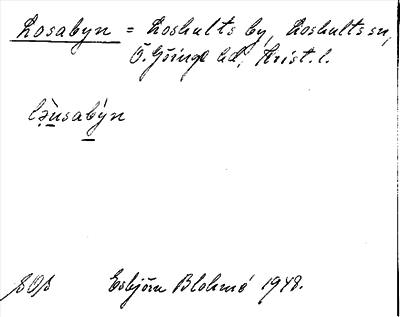 Losabyn = Loshults by, Loshults sn,
Ö. Göinge hd, Krist. l.
lə̀usabýn
SOÅ Esbjörn Blohmé 1948.